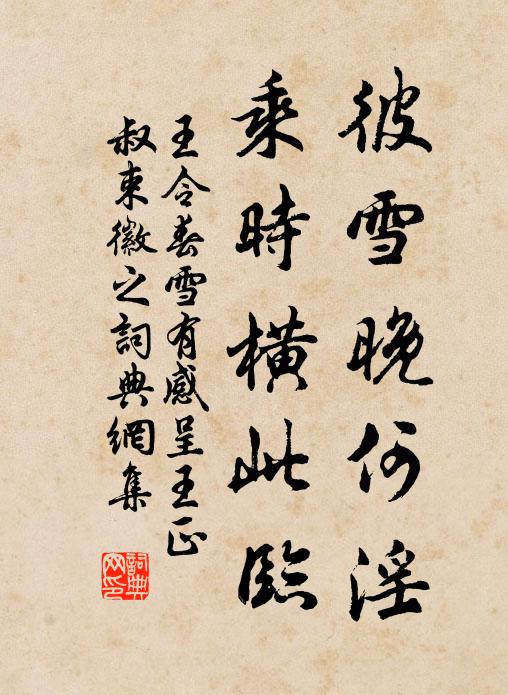 彼雪晚何淫
乘時橫此臨
王令春雪有感呈王正
叔束徽之詞典網集
詞典
網印